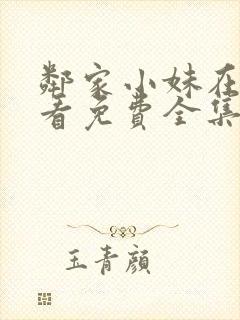 鄰家小妹在
看免費全集
玉青顏